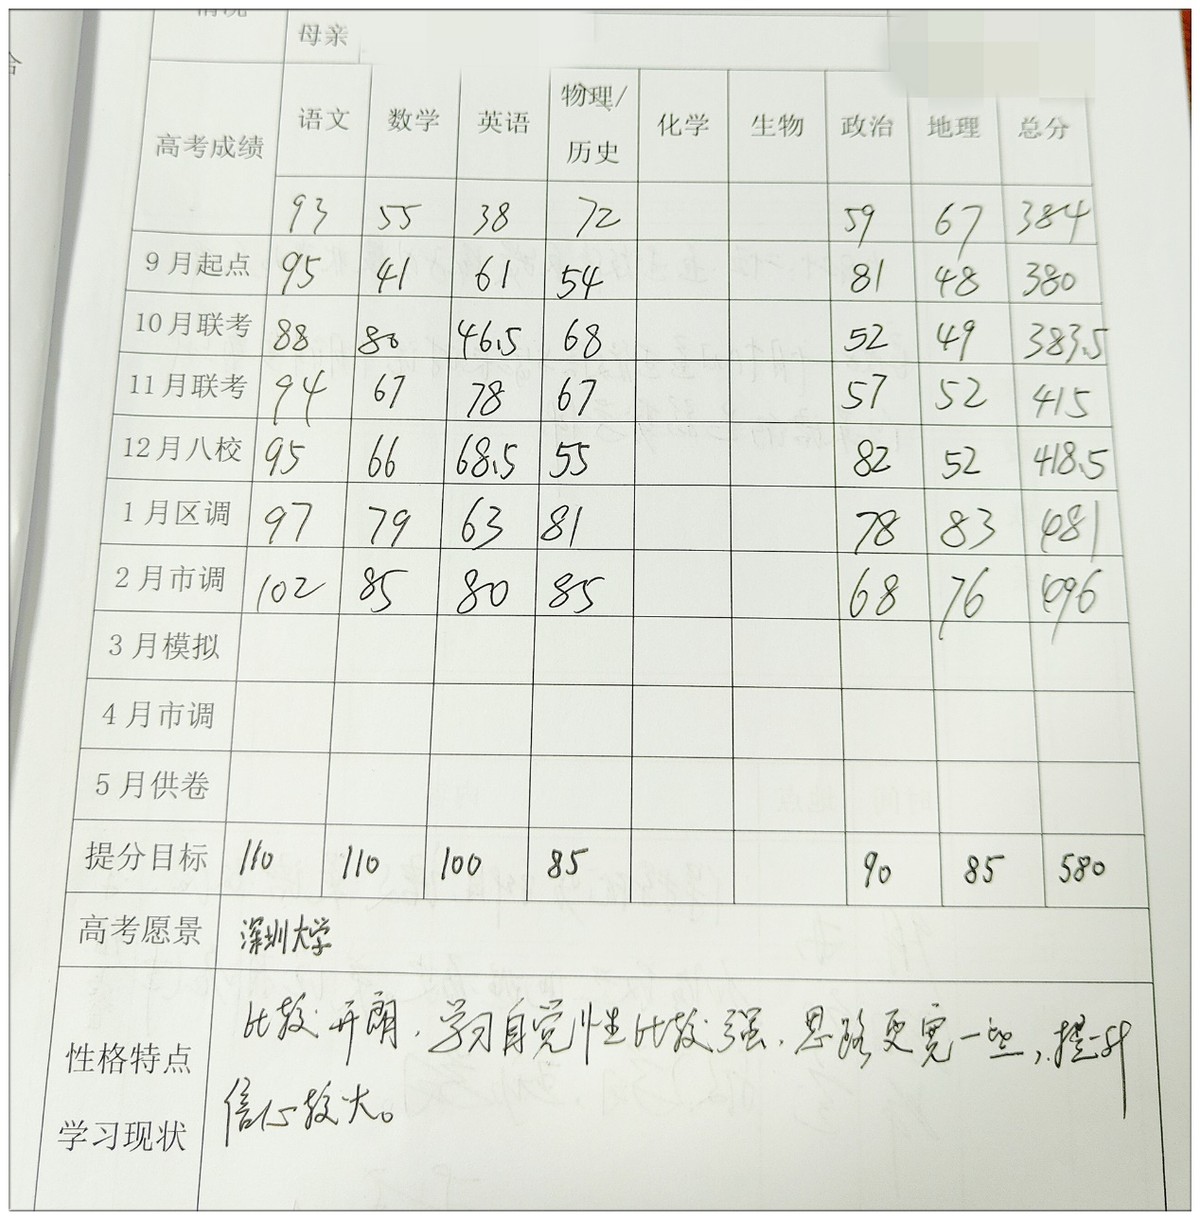 母亲
高考成绩 语文 数学 英语 物理/历史 化学 生物 政治 地理 总分
93 55 38 72 59 67 384
9月起点 95 41 61 54 81 48 380
10月联考 88 80 46.5 68 52 49 383.5
11月联考 94 67 78 67 57 52 415
12月八校 95 66 68.5 55 82 52 418.5
1月区调 97 79 63 81 78 83 481
2月市调 102 85 80 85 68 76 496
3月模拟
4月市调
5月供卷
提分目标 110 110 100 85 90 85 580
高考愿景 深圳大学
性格特点
学习现状
比较开朗，学习自觉性比较强，思路更宽一些，提升
信心较大。